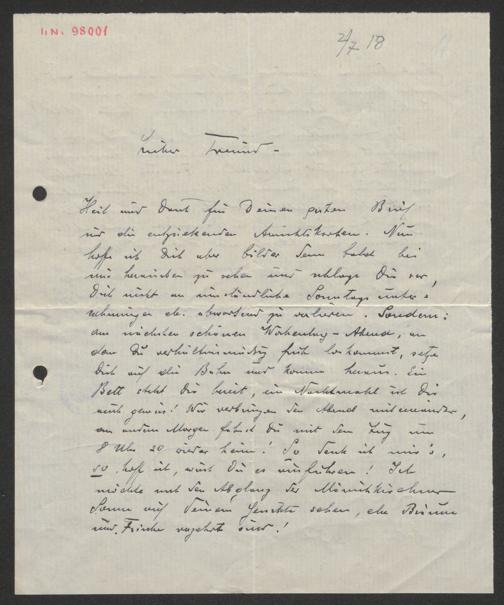 I.N. 98001
2/7 18
Lieber Freund –
Heil und Dank für Deinen guten Brief
und die entzückenden Ansichtskarten. Nun
hoffe ich Dich aber bald bei
uns herinnen zu sehen und schlage Dir vor,
Dich nicht an umständliche Sonntags unter=
nehmungen etc. abwartend zu verlieren. Sondern:
am nächsten schönen Wochentag-Abend, an
dem Du verhältnismäßig früh loskommst, setze
Dich auf die Bahn und komme heraus. Ein
Bett steht Dir bereit, ein Nachtmahl ist Dir
auch gewiss! Wir verbringen den Abend miteinander,
am andern Morgen fährst Du mit dem Zug um
8 Uhr 20 wieder heim! So denk ich mir's,
so hoffe ich, wirst Du es ausführen! Ich
möchte noch den Abglanz der
Sonne auf Deinem Gesichte sehen, ehe Bräune
und Frische verzehrt sind!